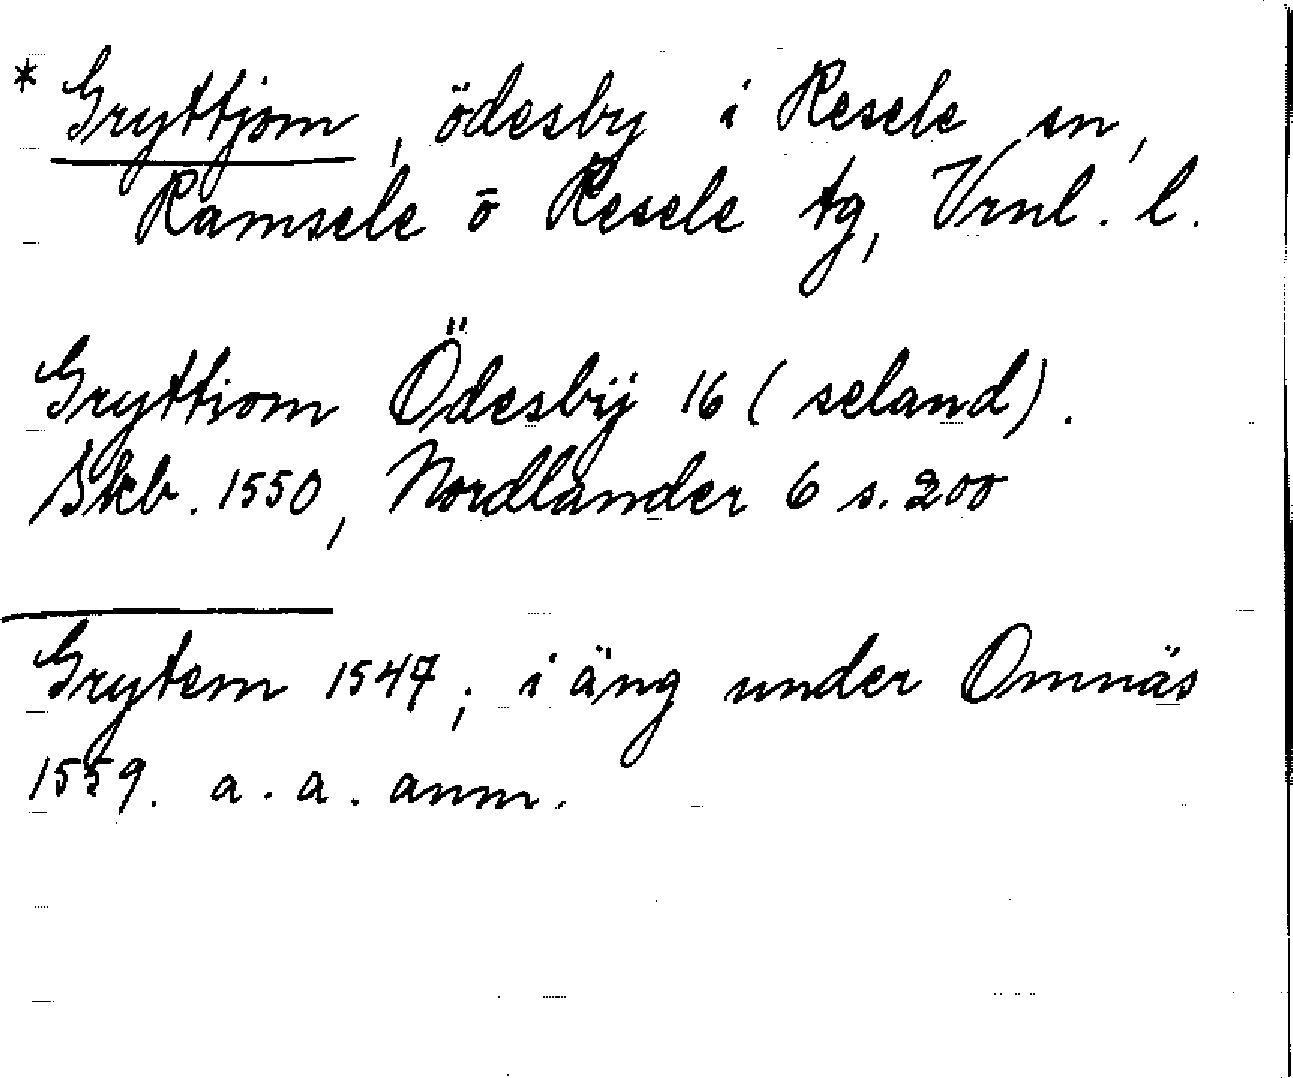 * Gryttjom, ödesby i Resele sn,
Ramsele o Resele tg, Vrnl. l.
Gryttiom Ödesbÿ 16 (seland).
Skb. 1550, Nordlander 6 s. 200
Grytem 1547; i äng under Omnäs
1559. a. a. anm.